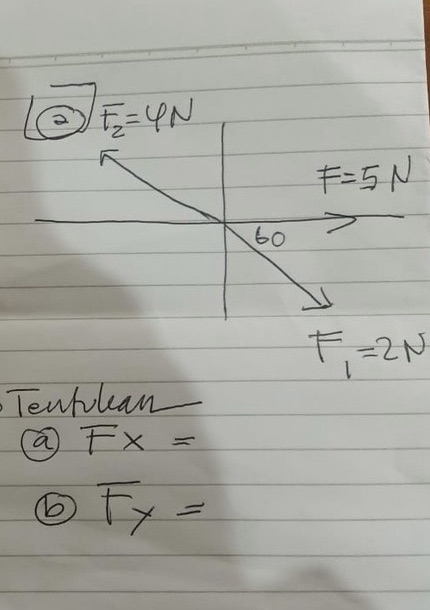 2 F₂=4N
F=5N
60
F₁=2N
Tentukan
a Fx =
b Fy =